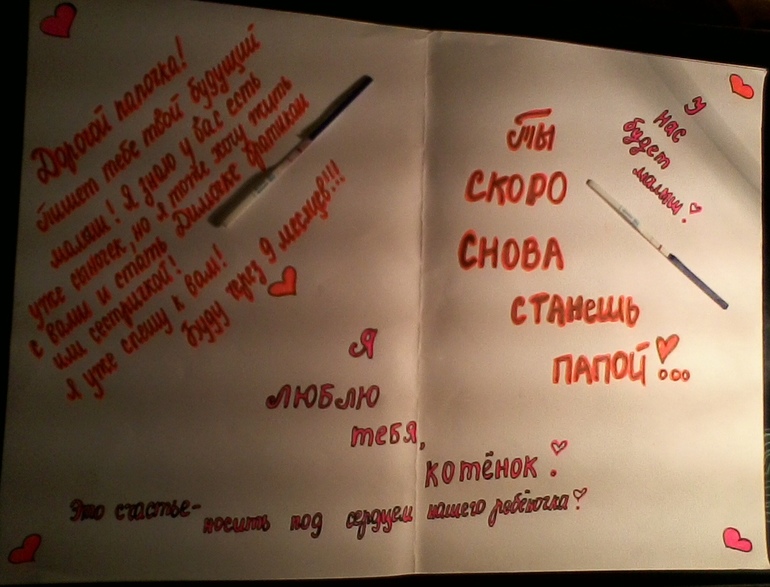 Дорогой папочка!
Пишет тебе твой будущий
малыш! Я знаю у вас есть
уже сыночек, но я тоже хочу жить
с вами и стать Димочке братиком
или сестричкой!
Я уже спешу к вам!
Буду через 9 месяцев!!!
Ты
скоро
снова
станешь
папой!...
У
нас
будет
малыш!
Я
люблю
тебя,
котёнок!
Это счастье-
носить под сердцем нашего ребёночка!